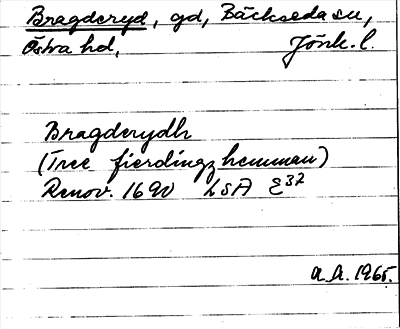 Bragderyd, gd, Bäckseda sn,
Östra hd, Jönk. l.
Bragderydh
(Tree fierdingz hemman)
Renov. 1690 LSA E³²
A.A. 1965.